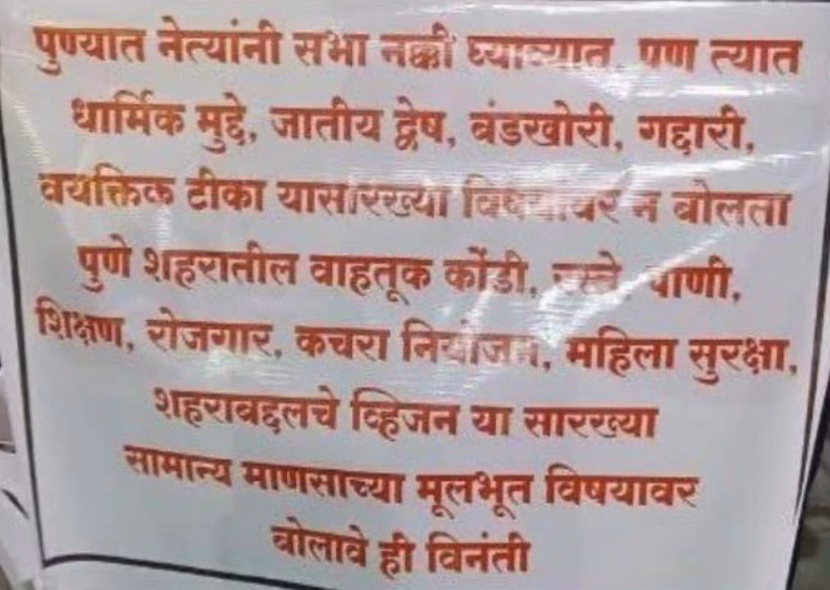 पुण्यात नेत्यांनी सभा नक्की घ्याव्यात, पण त्यात
धार्मिक मुद्दे, जातीय द्वेष, बंडखोरी, गद्दारी,
वयक्तिक टीका यासारख्या विषयांवर न बोलता
पुणे शहरातील वाहतूक कोंडी, रस्ते, पाणी,
शिक्षण, रोजगार, कचरा नियोजन, महिला सुरक्षा,
शहराबद्दलचे व्हिजन या सारख्या
सामान्य माणसाच्या मूलभूत विषयावर
बोलावे ही विनंती